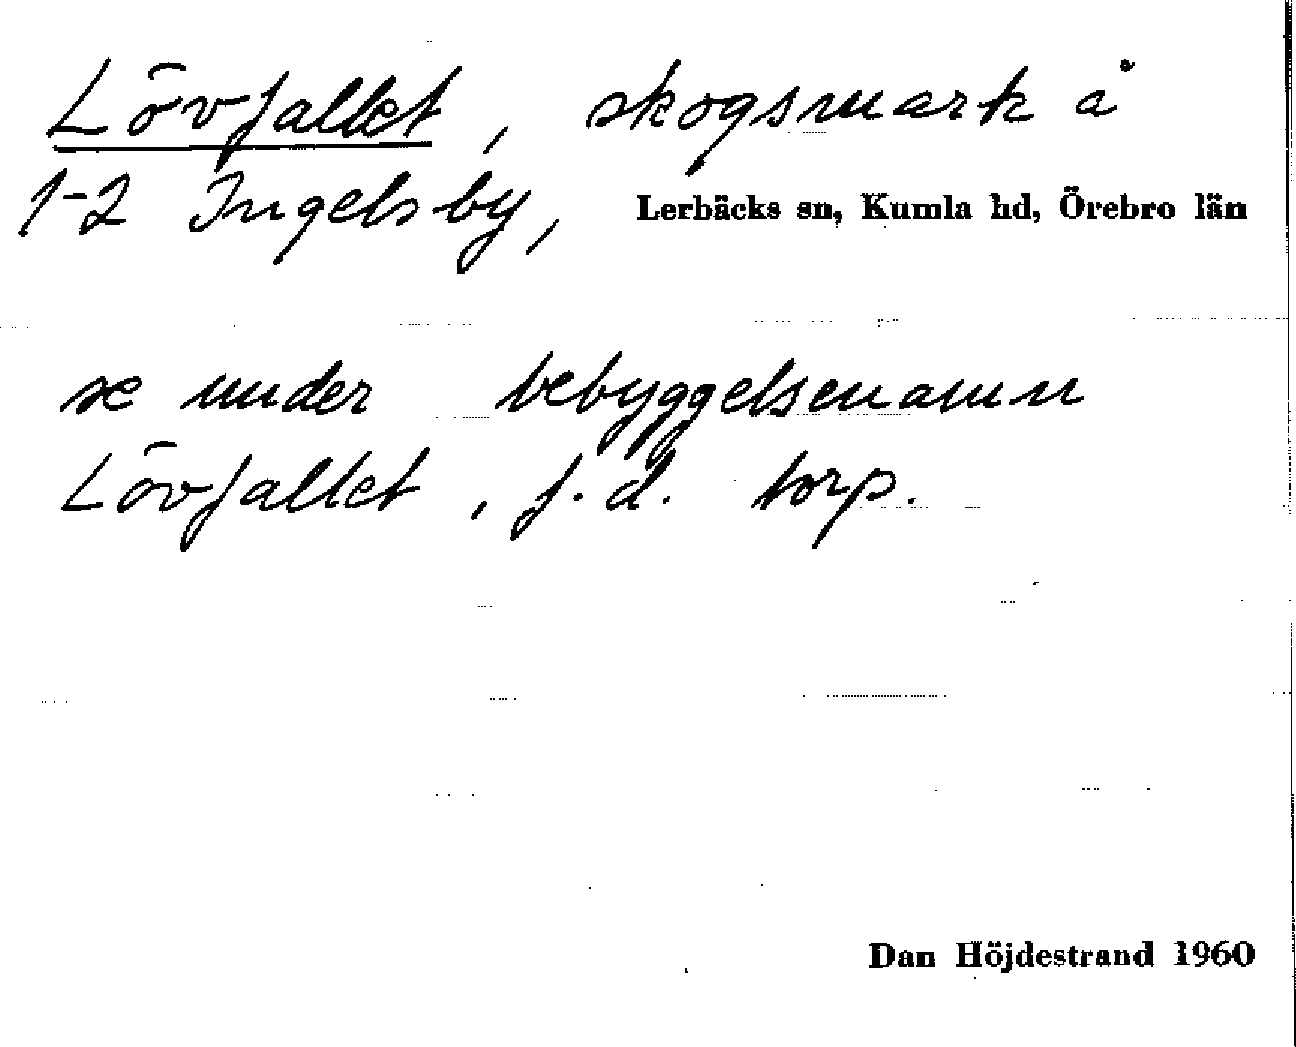 Lövfallet, skogsmark å
1-2 Ingelsby, Lerbäcks sn, Kumla hd, Örebro län
se under bebyggelsenamn
Lövfallet, f.d. torp.
Dan Höjdestrand 1960